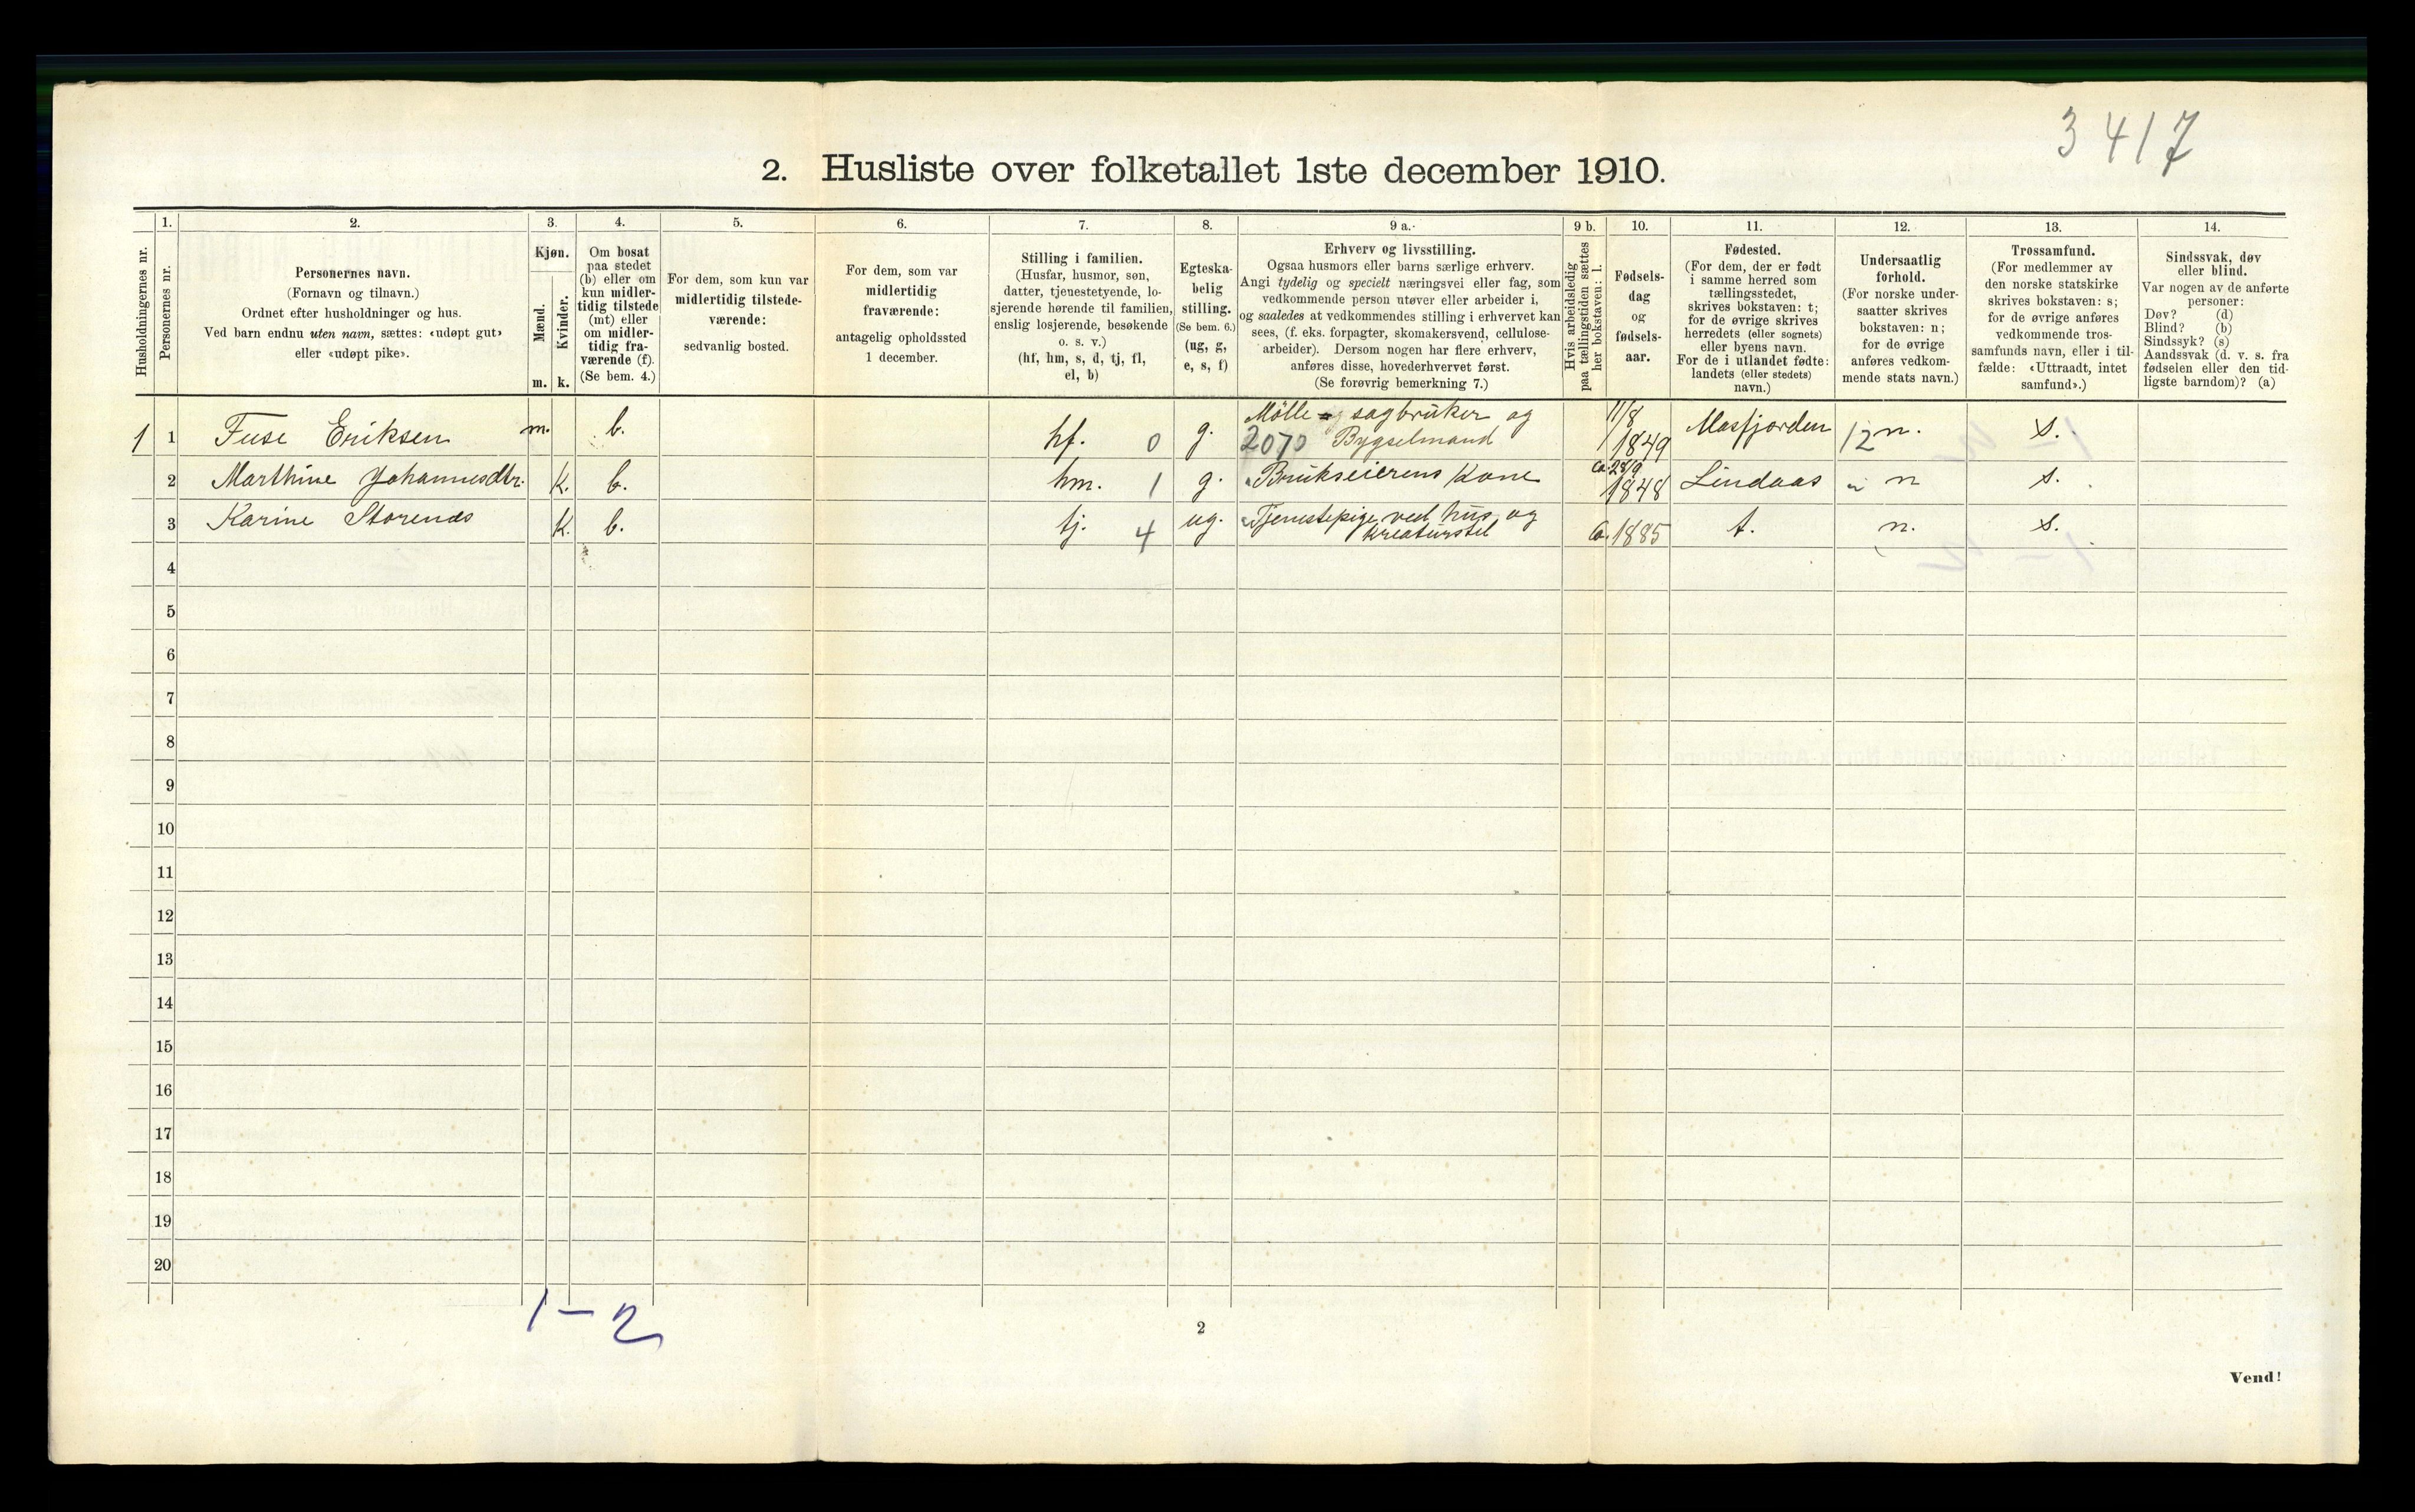 3417
2. Husliste over folketallet 1ste december 1910.
Husholdningernes nr.
1.
Personernes nr.
2.
Personernes navn.
(Fornavn og tilnavn.)
Ordnet efter husholdninger og hus.
Ved barn endnu uten navn, sættes: «udøpt gut»
eller «udøpt pike».
3.
Kjøn.
Mænd.
Kvinder.
m. k.
4.
Om bosat
paa stedet
(b) eller om
kun midler-
tidig tilstede
(mt) eller
om midler-
tidig fra-
værende (f).
(Se bem. 4.)
5.
For dem, som kun var
midlertidig tilstede-
værende:
sedvanlig bosted.
6.
For dem, som var
midlertidig
fraværende:
antagelig opholdssted
1 december.
7.
Stilling i familien.
(Husfar, husmor, søn,
datter, tjenestetyende, lo-
sjerende hørende til familien,
enslig losjerende, besøkende
o. s. v.)
(hf, hm, s, d, tj, fl,
el, b)
8.
Egteska-
belig
stilling.
(Se bem. 6.)
(ug, g,
e, s, f)
9 a.
Erhverv og livsstilling.
Ogsaa husmors eller barns særlige erhverv.
Angi tydelig og specielt næringsvei eller fag, som
vedkommende person utøver eller arbeider i,
og saaledes at vedkommendes stilling i erhvervet kan
sees, (f. eks. forpagter, skomakersvend, cellulose-
arbeider). Dersom nogen har flere erhverv,
anføres disse, hovederhvervet først.
(Se forøvrig bemerkning 7.)
9 b.
Hvis arbeidsledig
paa tællingstiden sættes
her bokstaven: l.
10.
Fødsels-
dag
og
fødsels-
aar.
11.
Fødested.
(For dem, der er født
i samme herred som
tællingsstedet,
skrives bokstaven: t;
for de øvrige skrives
herredets (eller sognets)
eller byens navn.
For de i utlandet fødte:
landets (eller stedets)
navn.)
12.
Undersaatlig
forhold.
(For norske under-
saatter skrives
bokstaven: n;
for de øvrige
anføres vedkom-
mende stats navn.)
13.
Trossamfund.
(For medlemmer av
den norske statskirke
skrives bokstaven: s;
for de øvrige anføres
vedkommende tros-
samfunds navn, eller i til-
fælde: «Uttraadt, intet
samfund».)
14.
Sindssvak, døv
eller blind.
Var nogen av de anførte
personer:
Døv? (d)
Blind? (b)
Sindssyk? (s)
Aandssvak (d. v. s. fra
fødselen eller den tid-
ligste barndom)? (a)
1 1 Tuse Eriksen m. b. hf. 0 g. Mölle- sagbrüker og 2070 Bygselmand 11/8 1849 Masfjorden 12 n. s.
2 Marthine Johannesdtr. K. b. hm. 1 g. Brükseierens Kone ca. 28/9 1848 Lindaas n s.
3 Karine Storenes K. b. tj. 4 ug. Tjenestepige ved hüs og Kreatürstel Ca. 1885 t. n. s.
4
5
6
7
8
9
10
11
12
13
14
15
16
17
18
19
20
1 – 2
2
Vend!